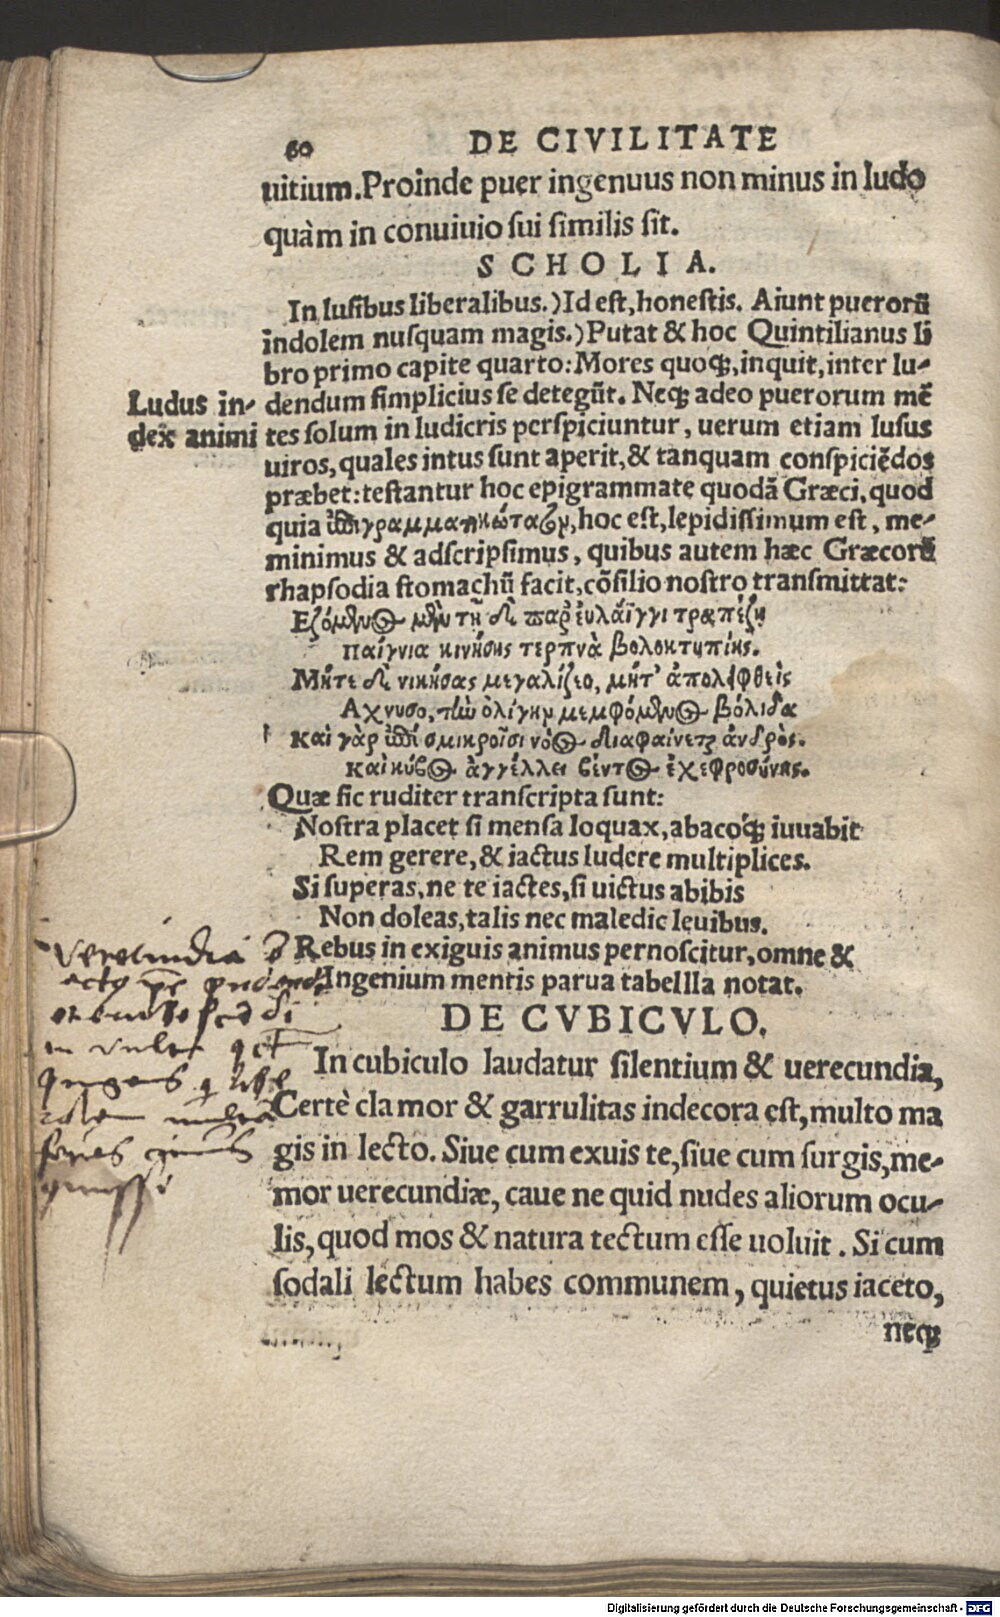 60 DE CIVILITATE
uitium. Proinde puer ingenuus non minus in ludo
quàm in conuiuio sui similis sit.
SCHOLIA.
In lusibus liberalibus.) Id est, honestis. Aiunt puerorũ
indolem nusquam magis.) Putat & hoc Quintilianus li
bro primo capite quarto: Mores quoq;, inquit, inter lu-
Ludus in-
dex animi
dendum simplicius se detegũt. Neq; adeo puerorum mẽ
tes solum in ludicris perspiciuntur, uerum etiam lusus
uiros, quales intus sunt aperit, & tanquam conspiciẽdos
præbet: testantur hoc epigrammate quodã Græci, quod
quia ἐπιγραμματικώτατον, hoc est, lepidissimum est, me-
minimus & adscripsimus, quibus autem hæc Græcorũ
rhapsodia stomachũ facit, cõsilio nostro transmittat:
Εζόμενος μὲν τῇ δε παρ' ἐυλάϊγγι τραπέζῃ
παίγνια κινήσης τερπνὰ βολοκτυπίης.
Μήτε δὲ νικήσας μεγαλίζεο, μήτ' ἀπολειφθεὶς
Αχνυσο, τὴν ὀλίγην μεμφόμενος βόλιδα
Καὶ γὰρ ἐπὶ σμικροῖσι νόος διαφαίνεται ἀνδρὸς.
καὶ κύβος ἀγγέλλει βένθος ἐχεφροσύνης.
Quæ sic ruditer transcripta sunt:
Nostra placet si mensa loquax, abacoq́; iuuabit
Rem gerere, & iactus ludere multiplices.
Si superas, ne te iactes, si uictus abibis
Non doleas, talis nec maledic leuibus.
Rebus in exiguis animus pernoscitur, omne &
Ingenium mentis parua tabellla notat.
DE CVBICVLO.
In cubiculo laudatur silentium & uerecundia,
Certè clamor & garrulitas indecora est, multo ma
gis in lecto. Siue cum exuis te, siue cum surgis, me-
mor uerecundiæ, caue ne quid nudes aliorum ocu-
lis, quod mos & natura tectum esse uoluit. Si cum
sodali lectum habes communem, quietus iaceto,
neq;
Verecundia
Digitalisierung gefördert durch die Deutsche Forschungsgemeinschaft - DFG